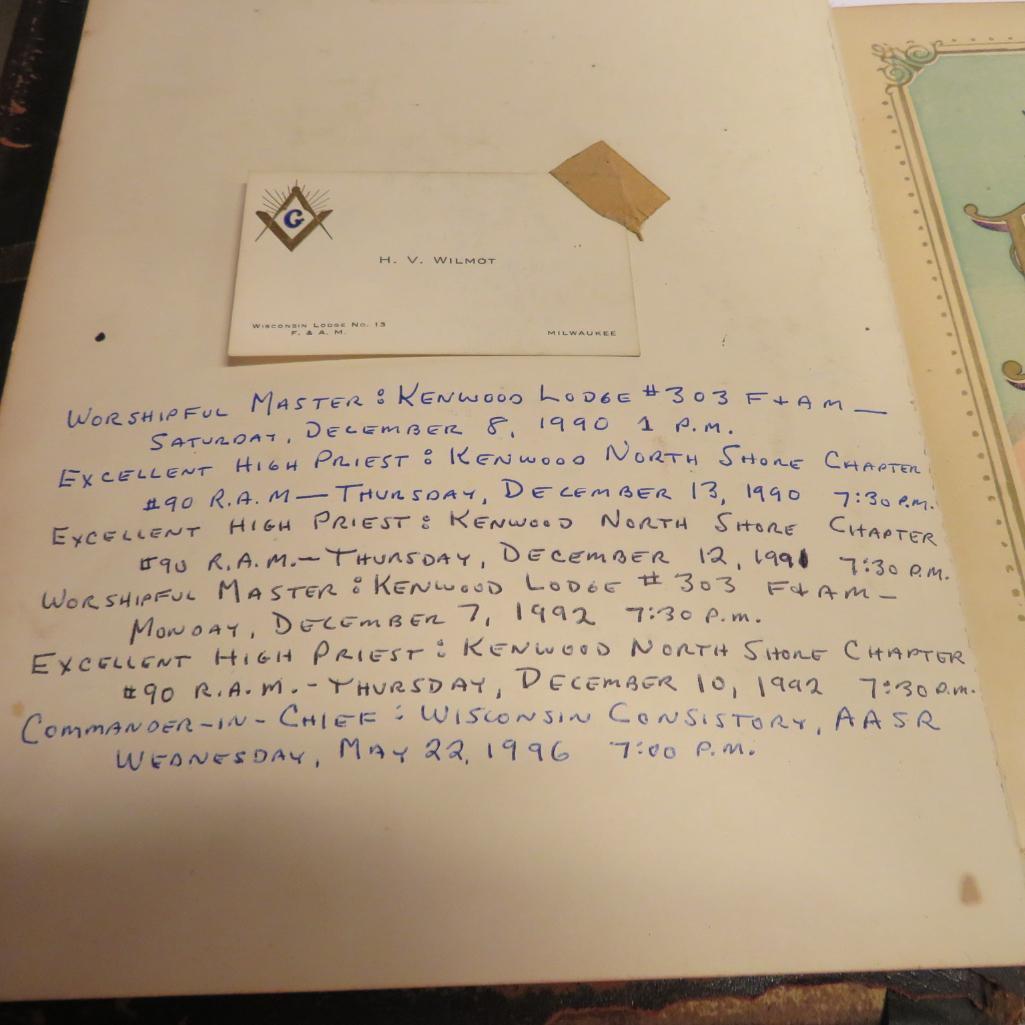 G
H. V. WILMOT
WISCONSIN LODGE NO. 13
F. & A. M.
MILWAUKEE
WORSHIPFUL MASTER: KENWOOD LODGE #303 F+AM—
SATURDAY, DECEMBER 8, 1990 1 P.M.
EXCELLENT HIGH PRIEST: KENWOOD NORTH SHORE CHAPTER
#90 R.A.M—THURSDAY, DECEMBER 13, 1990 7:30 P.M.
EXCELLENT HIGH PRIEST: KENWOOD NORTH SHORE CHAPTER
#90 R.A.M.—THURSDAY, DECEMBER 12, 1991 7:30 P.M.
WORSHIPFUL MASTER: KENWOOD LODGE #303 F&AM—
MONDAY, DECEMBER 7, 1992 7:30 P.M.
EXCELLENT HIGH PRIEST: KENWOOD NORTH SHORE CHAPTER
#90 R.A.M.-THURSDAY, DECEMBER 10, 1992 7:30 P.M.
COMMANDER-IN-CHIEF: WISCONSIN CONSISTORY, AASR
WEDNESDAY, MAY 22, 1996 7:00 P.M.